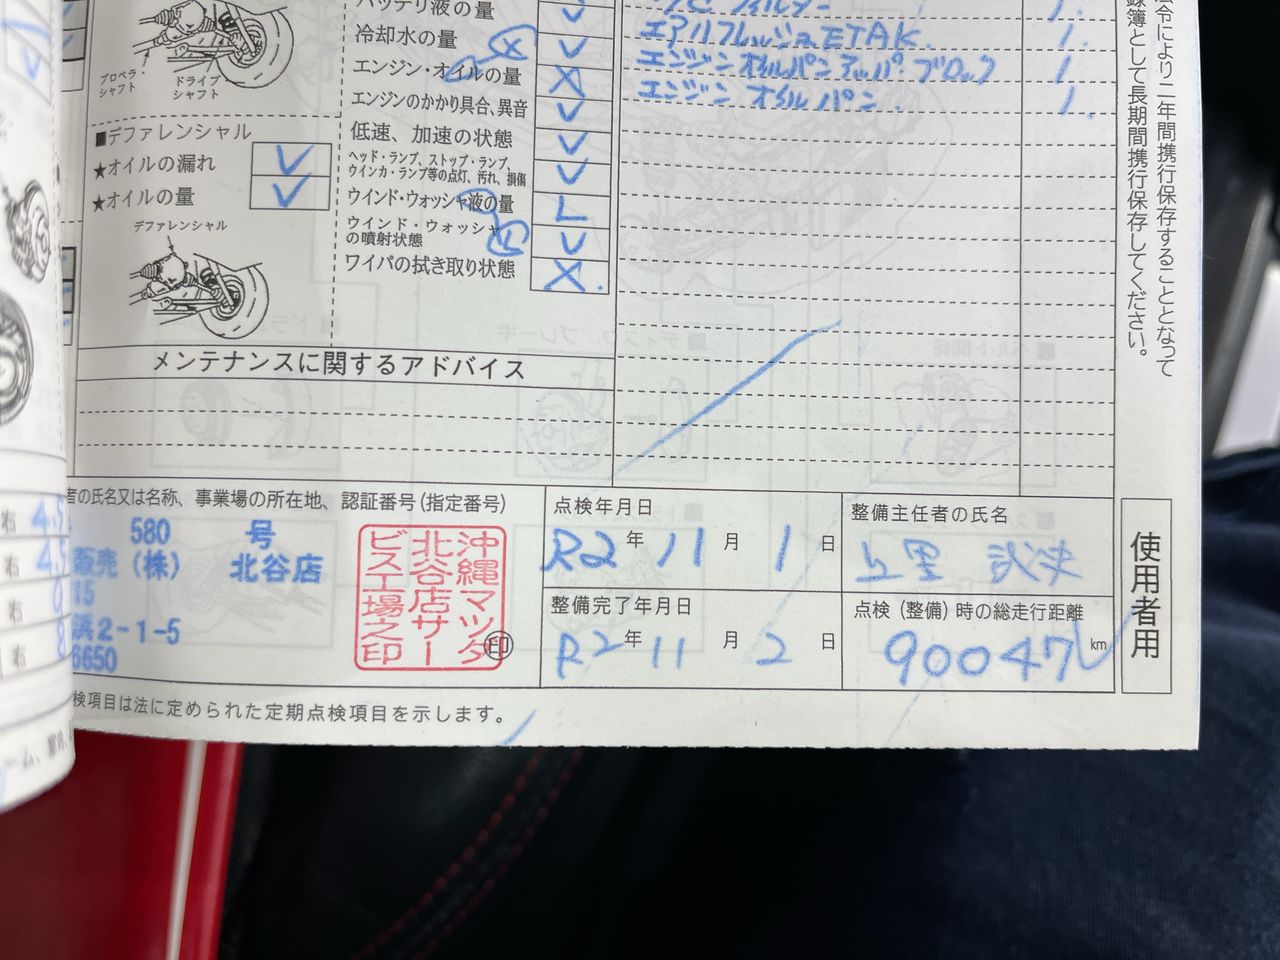 バッテリ液の量
冷却水の量
エンジン・オイルの量
エンジンのかかり具合、異音
低速、加速の状態
ヘッド・ランプ、ストップ・ランプ、
ウインカ・ランプ等の点灯、汚れ、損傷
ウインド・ウォッシャ液の量
ウインド・ウォッシャ
の噴射状態
ワイパの拭き取り状態
プロペラ・
シャフト
ドライブ
シャフト
■デファレンシャル
★オイルの漏れ
★オイルの量
デファレンシャル
エアリフレッシュETAK. 1.
エンジンオイルパンアッパーブロック 1
エンジン オイルパン. 1.
メンテナンスに関するアドバイス
者の氏名又は名称、事業場の所在地、認証番号(指定番号)
580 号
販売(株) 北谷店
15
浜2-1-5
6650
沖縄マツダ
北谷店サー
ビス工場之印
印
点検年月日
R2年11月1日
整備完了年月日
R2年11月2日
整備主任者の氏名
点検(整備)時の総走行距離
90047km
使用者用
検項目は法に定められた定期点検項目を示します。
法令により二年間携行保存することとなって
録簿として長期間携行保存してください。
右 4.5
右 4.5
右
右 8